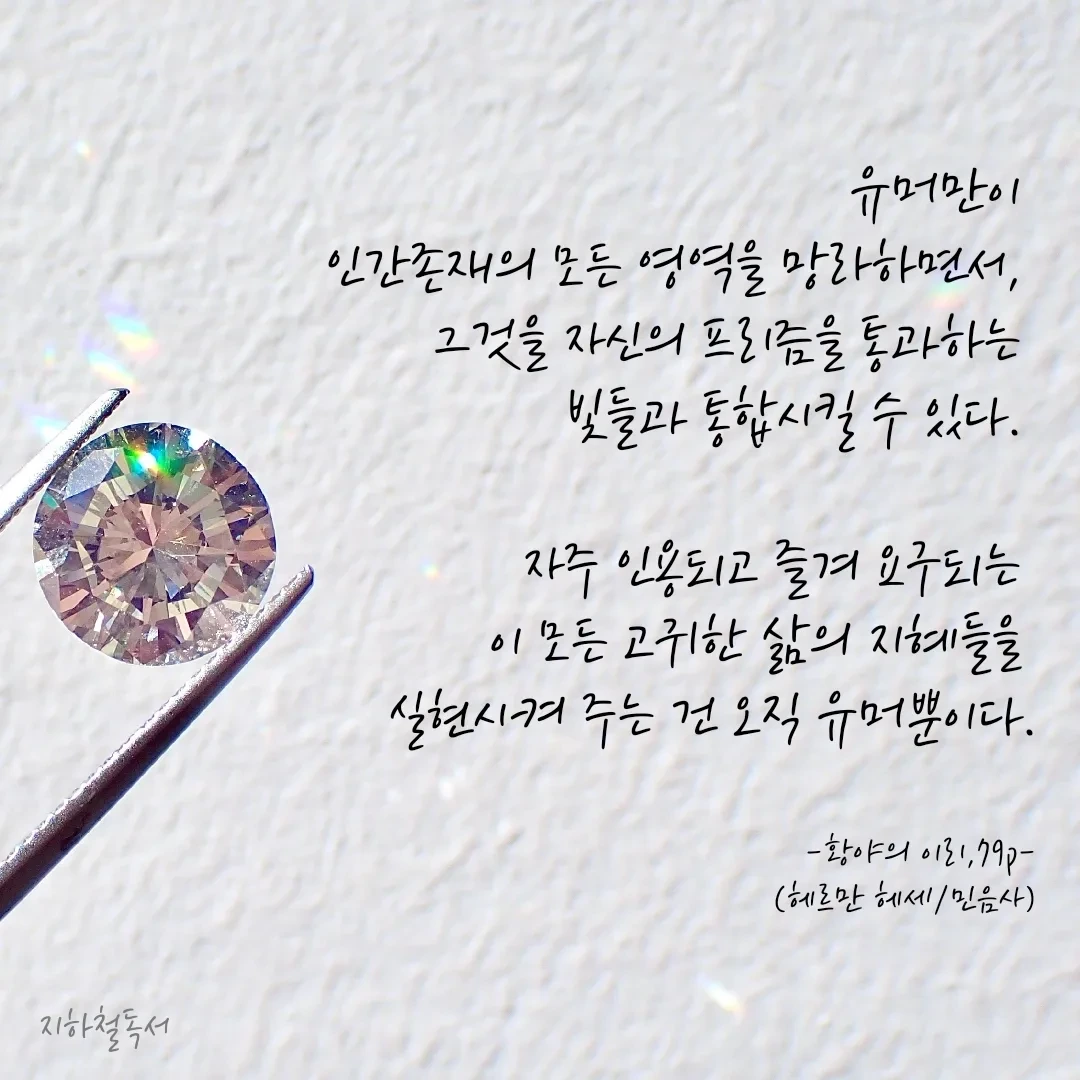 유머만이
인간존재의 모든 영역을 망라하면서,
그것을 자신의 프리즘을 통과하는
빛들과 통합시킬 수 있다.
자주 인용되고 즐겨 요구되는
이 모든 고귀한 삶의 지혜들을
실현시켜 주는 건 오직 유머뿐이다.
-황야의 이리,79p-
(헤르만 헤세/민음사)
지하철독서